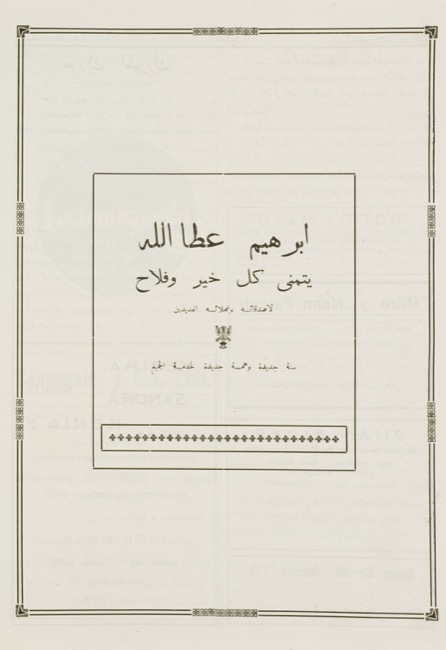 ابرهيم عطا الله
يتمنى كل خير وفلاح
لاصدقائه وعملائه العديدين
سنة جديدة وهمة جديدة لخدمة الجميع